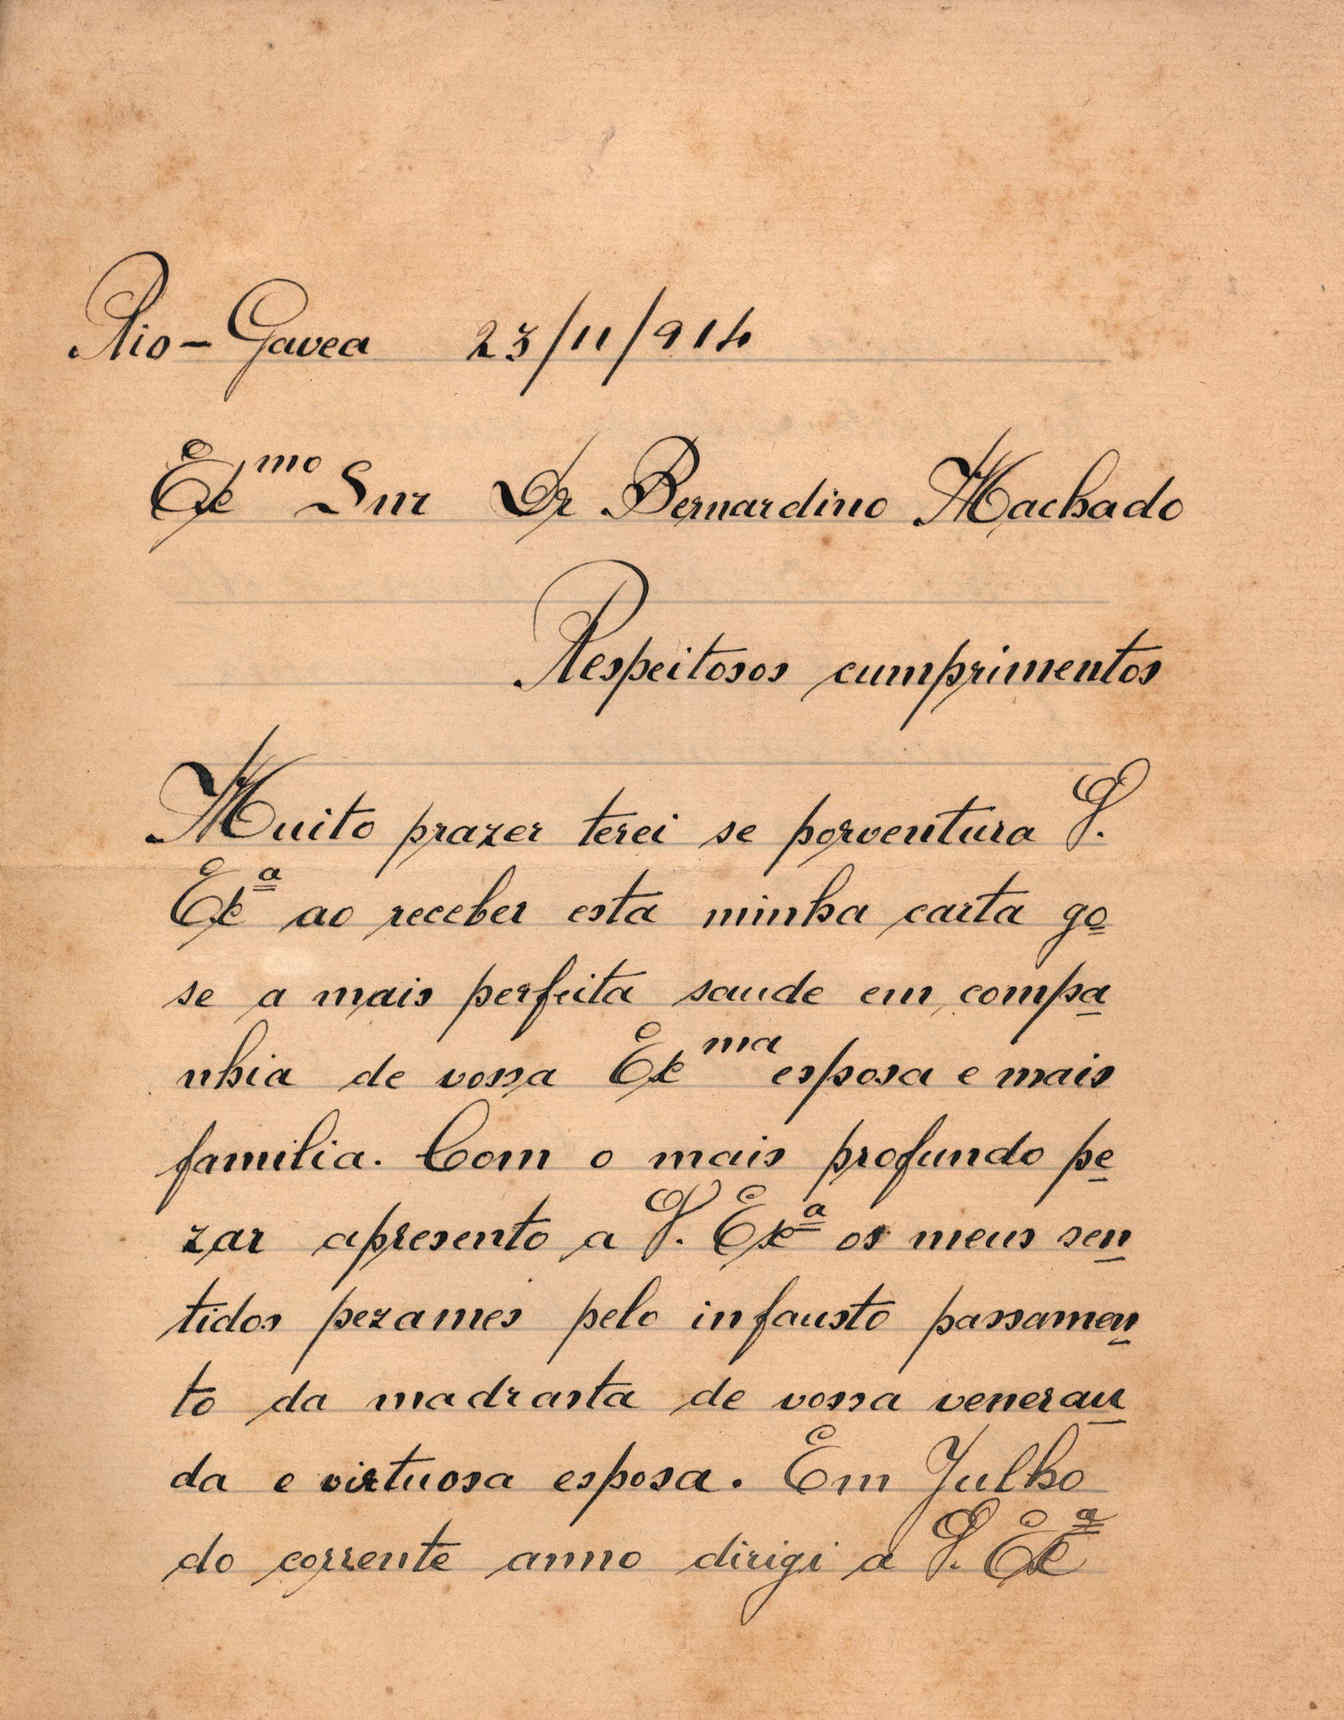 Rio-Gavea 23/11/914
Exmo Snr Dr Bernardino Machado
Respeitosos cumprimentos
Muito prazer terei se porventura V.
Exª ao receber esta minha carta go
se a mais perfeita saude em compa
nhia de vossa Exma esposa e mais
familia. Com o mais profundo pe
zar apresento a V. Exª os meus sen
tidos pezames pelo infausto passamen
to da madrasta de vossa veneran
da e virtuosa esposa. Em Julho
do corrente anno dirigi a V. Exª